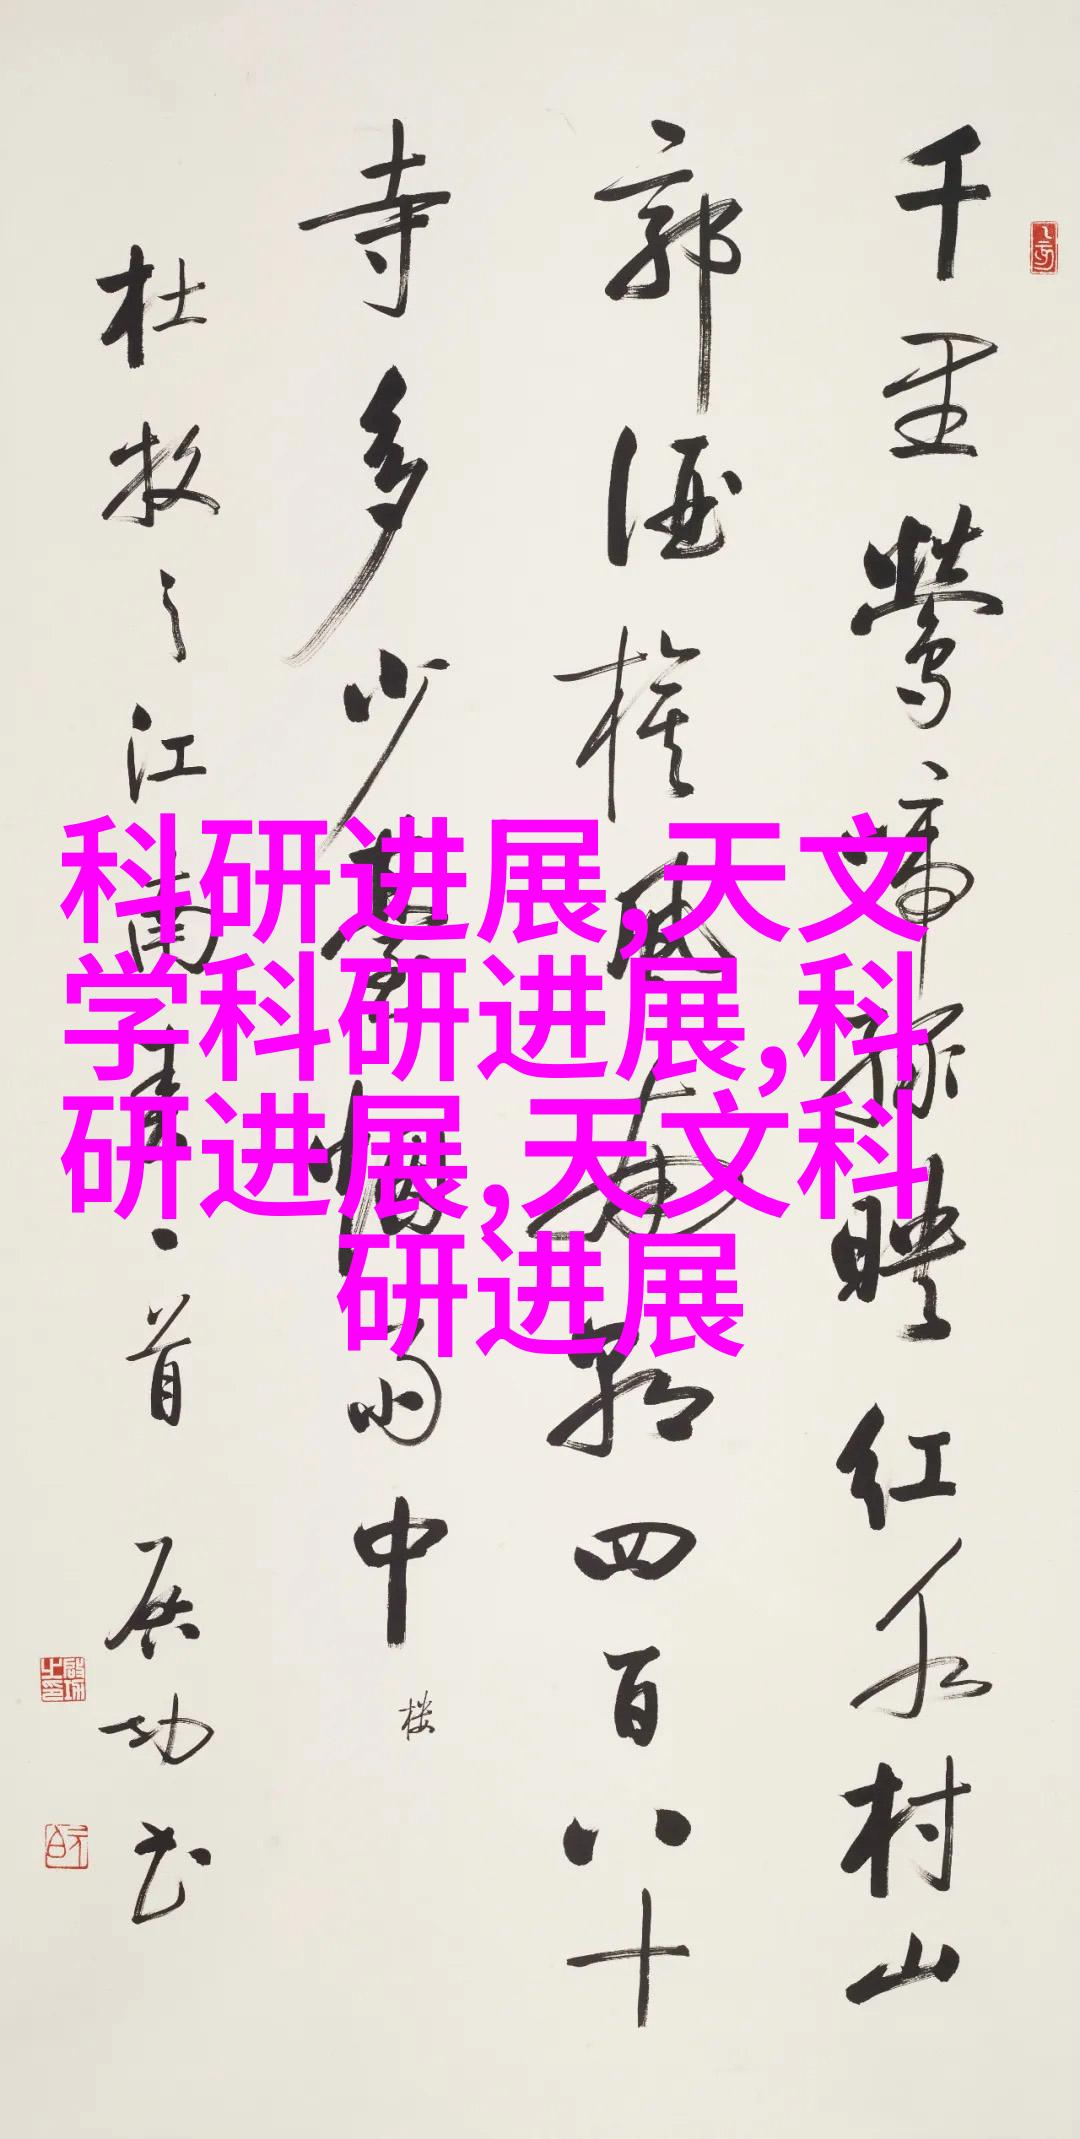 千里鶯啼绿映红水村山
郭酒旗風南朝四百八十
寺多少臺烟雨中
楼
杜牧之江南春一首 启功书
科研进展,天文
学科研进展,科
研进展,天文科
研进展